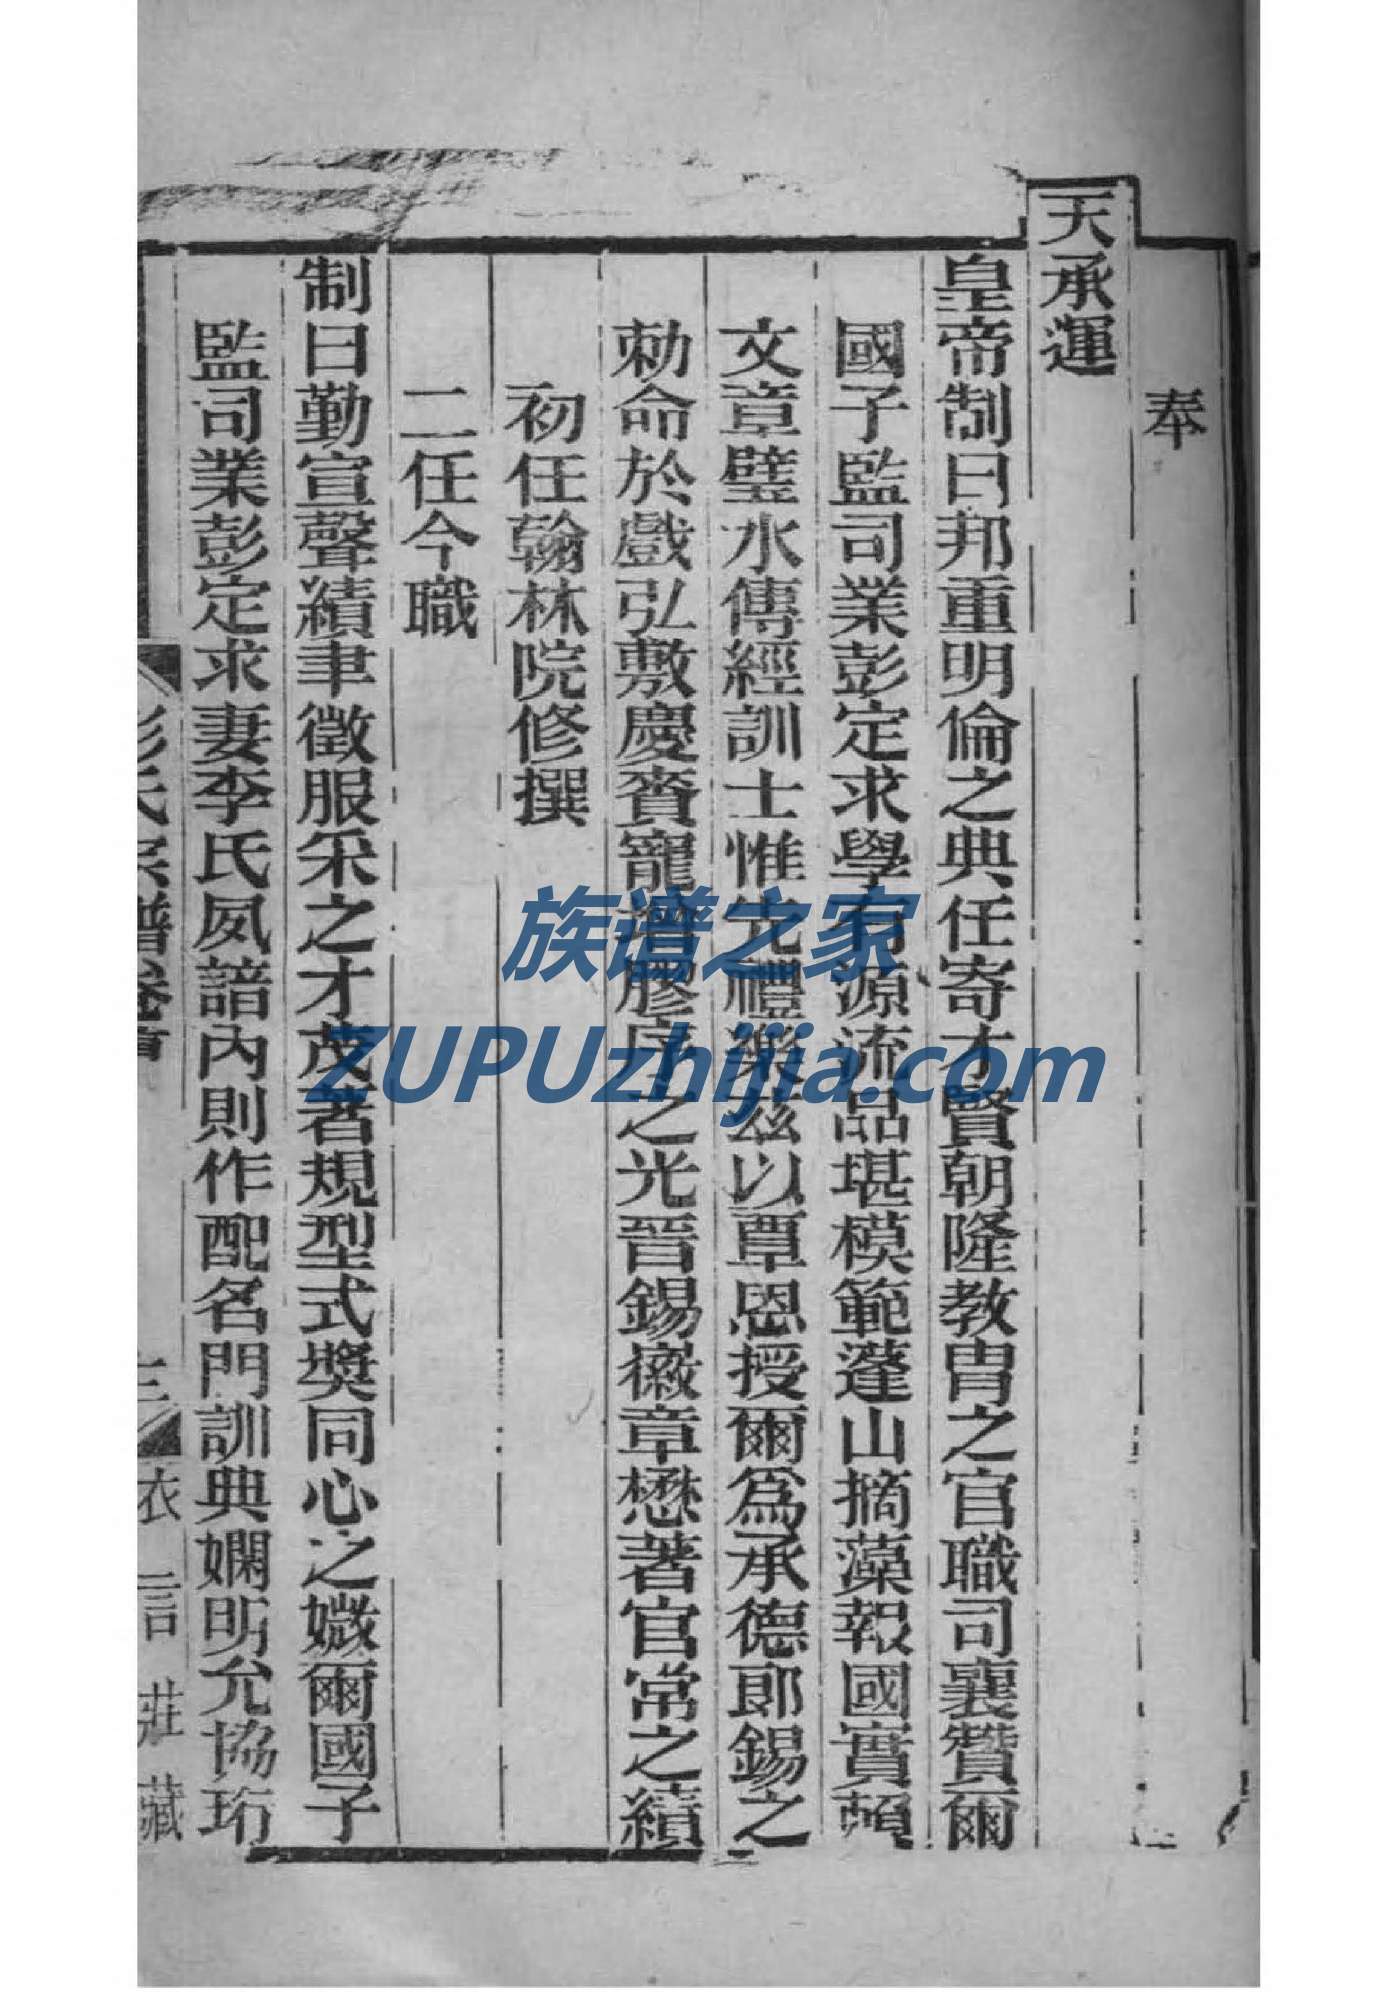 奉
天承運
皇帝制曰邦重明倫之典任寄才賢朝隆教冑之官職司襄贊爾
國子監司業彭定求學有源流品堪模範蓬山摛藻報國實頼
文章璧水傳經訓士惟先禮樂茲以覃恩授爾爲承德郎錫之
勅命於戲弘敷慶賚寵增膠序之光晉錫徽章懋著官常之績
初任翰林院修撰
二任今職
制曰勤宣聲績聿徵服采之才茂著規型式獎同心之媺爾國子
監司業彭定求妻李氏夙諳內則作配名門訓典嫻明允協珩
彭氏宗譜卷首
三
衣言莊藏
族谱之家
ZUPUzhijia.com